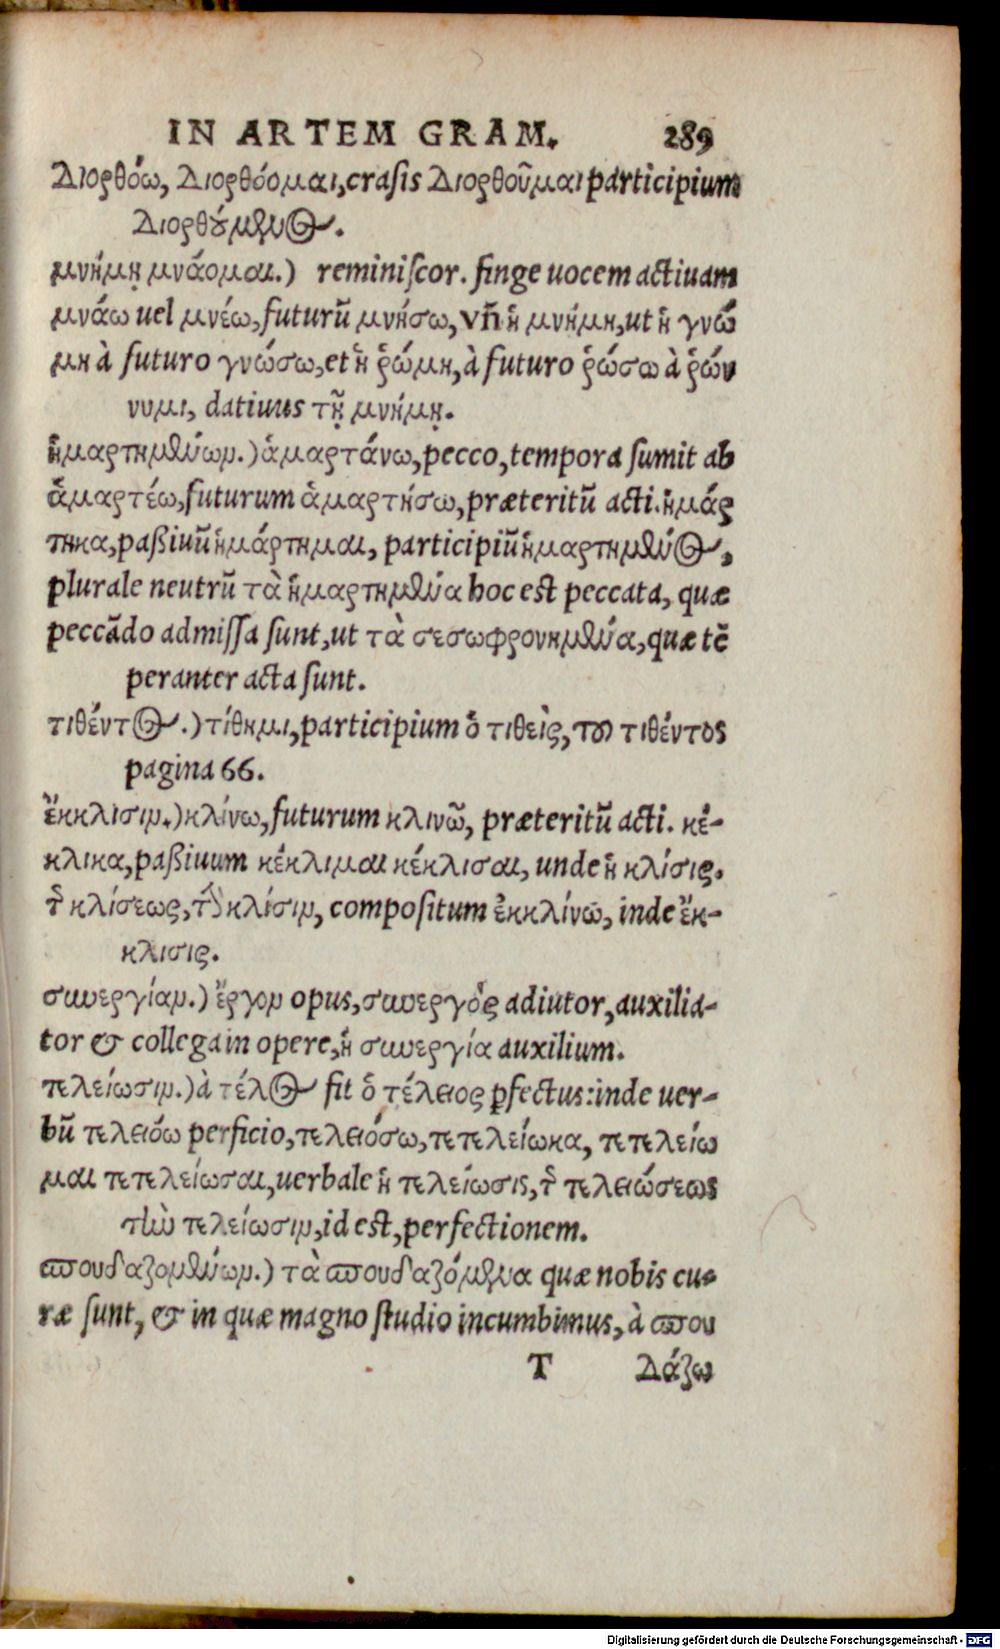 IN ARTEM GRAM. 289
Διορθόω, Διορθόομαι, crasis Διορθοῦμαι participium
Διορθούμενος.
μνήμῃ μνάομαι.) reminiscor. finge uocem actiuam
μνάω uel μνέω, futurū μνήσω, vñ ἡ μνήμη, ut ἡ γνώ
μη à futuro γνώσω, et ἡ ῥώμη, à futuro ῥώσω à ῥών
νυμι, datiuus τῇ μνήμῃ.
ἡμαρτημένων.) ἁμαρτάνω, pecco, tempora sumit ab
ἁμαρτέω, futurum ἁμαρτήσω, præteritū acti. ἡμάρ
τηκα, paßiuū ἡμάρτημαι, participiū ἡμαρτημένος,
plurale neutrū τὰ ἡμαρτημένα hoc est peccata, quæ
peccādo admissa sunt, ut τὰ σεσωφρονημένα, quæ tē
peranter acta sunt.
τιθέντος.) τίθημι, participium ὁ τιθεὶς, τοῦ τιθέντος
pagina 66.
ἔκκλισιν.) κλίνω, futurum κλινῶ, præteritū acti. κέ-
κλικα, paßiuum κέκλιμαι κέκλισαι, unde ἡ κλίσις.
τῆς κλίσεως, τὴν κλίσιν, compositum ἐκκλίνω, inde ἔκ-
κλισις.
συνεργίαν.) ἔργον opus, συνεργὸς adiutor, auxilia-
tor & collega in opere, ἡ συνεργία auxilium.
τελείωσιν.) à τέλος fit ὁ τέλειος pfectus: inde uer-
bū τελειόω perficio, τελειόσω, τετελείωκα, τετελείω
μαι τετελείωσαι, uerbale ἡ τελείωσις, τῆς τελειώσεως
τὴν τελείωσιν, id est, perfectionem.
σπουδαζομένων.) τὰ σπουδαζόμενα quæ nobis cu-
ræ sunt, & in quæ magno studio incumbimus, à σπου
T Δάζω
Digitalisierung gefördert durch die Deutsche Forschungsgemeinschaft - DFG